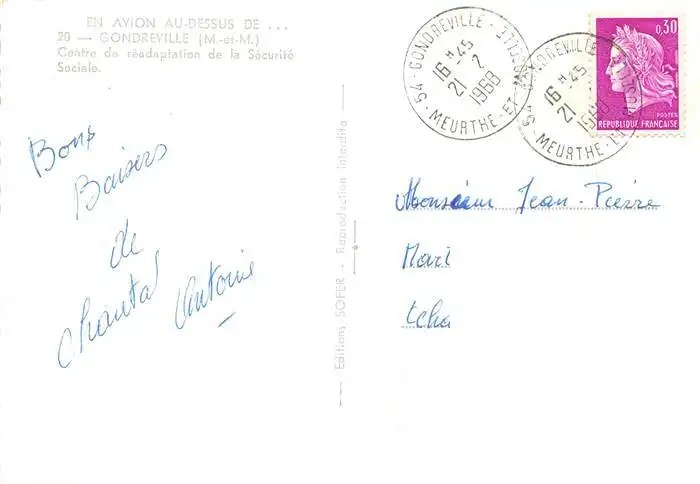 EN AVION AU-DESSUS DE ...
20 — GONDREVILLE (M.-et-M.)
Centre de réadaptation de la Sécurité
Sociale.
Bons
Baisers
de
Chantal
Antoine
Editions SOFER - Reproduction interdite
54 - GONDREVILLE -
16 H -45
21 - 2
1968
MEURTHE-ET-
54 - GONDREVILLE
16 H -45
21
1968
MEURTHE-E
0,30
POSTES
REPUBLIQUE FRANÇAISE
Monsieur Jean-Pierre